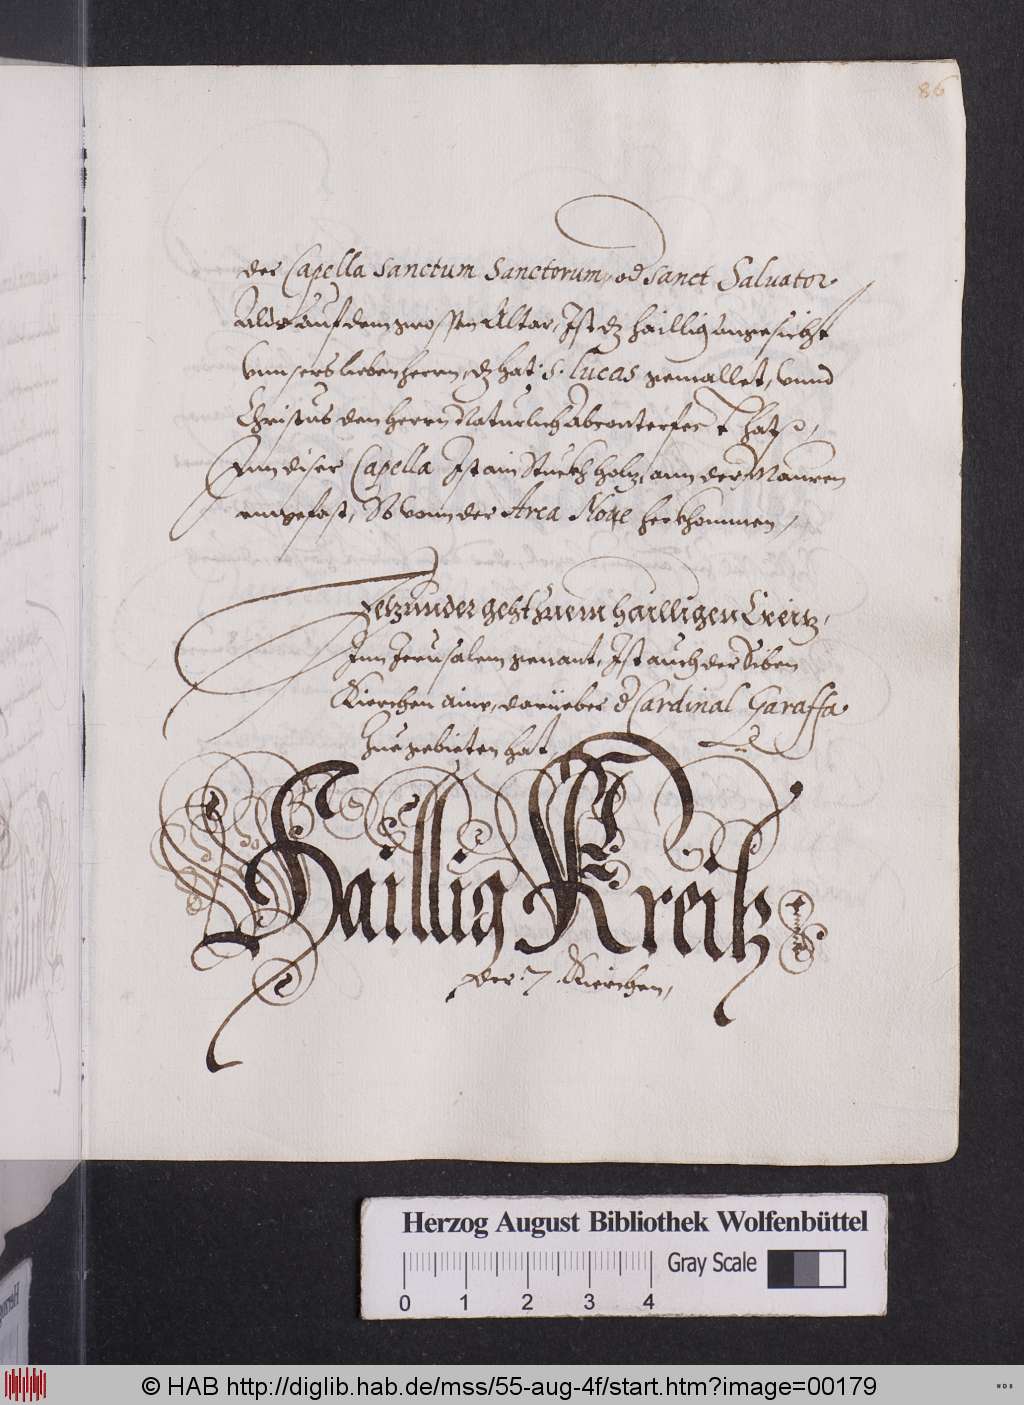 86
der Capella Sanctum Sanctorum, od Sanct Salvator
Alda auf dem grossen Altar, Ist dz haillig angesicht
Vnnsers lieben herrn, dz hat S. Lucas gemallet, Vnnd
Christus den herrn Naturlich Abconterfet hat,
Inn diser Capella Ist ain Stuckh holz, ann der Mauren
eingefast, So vonn der Arca Noue herkhommen,
Jetzunder geht zuem hailligen Creitz,
Inn Jerusalem genant, Ist auch der Siben
Kierchen aine, dariieber d Cardinal Garaffa
Zue gebieten hat
Haillig Kreitz
der 7 Kierchen,
Herzog August Bibliothek Wolfenbüttel
Gray Scale
0 1 2 3 4
© HAB http://diglib.hab.de/mss/55-aug-4f/start.htm?image=00179